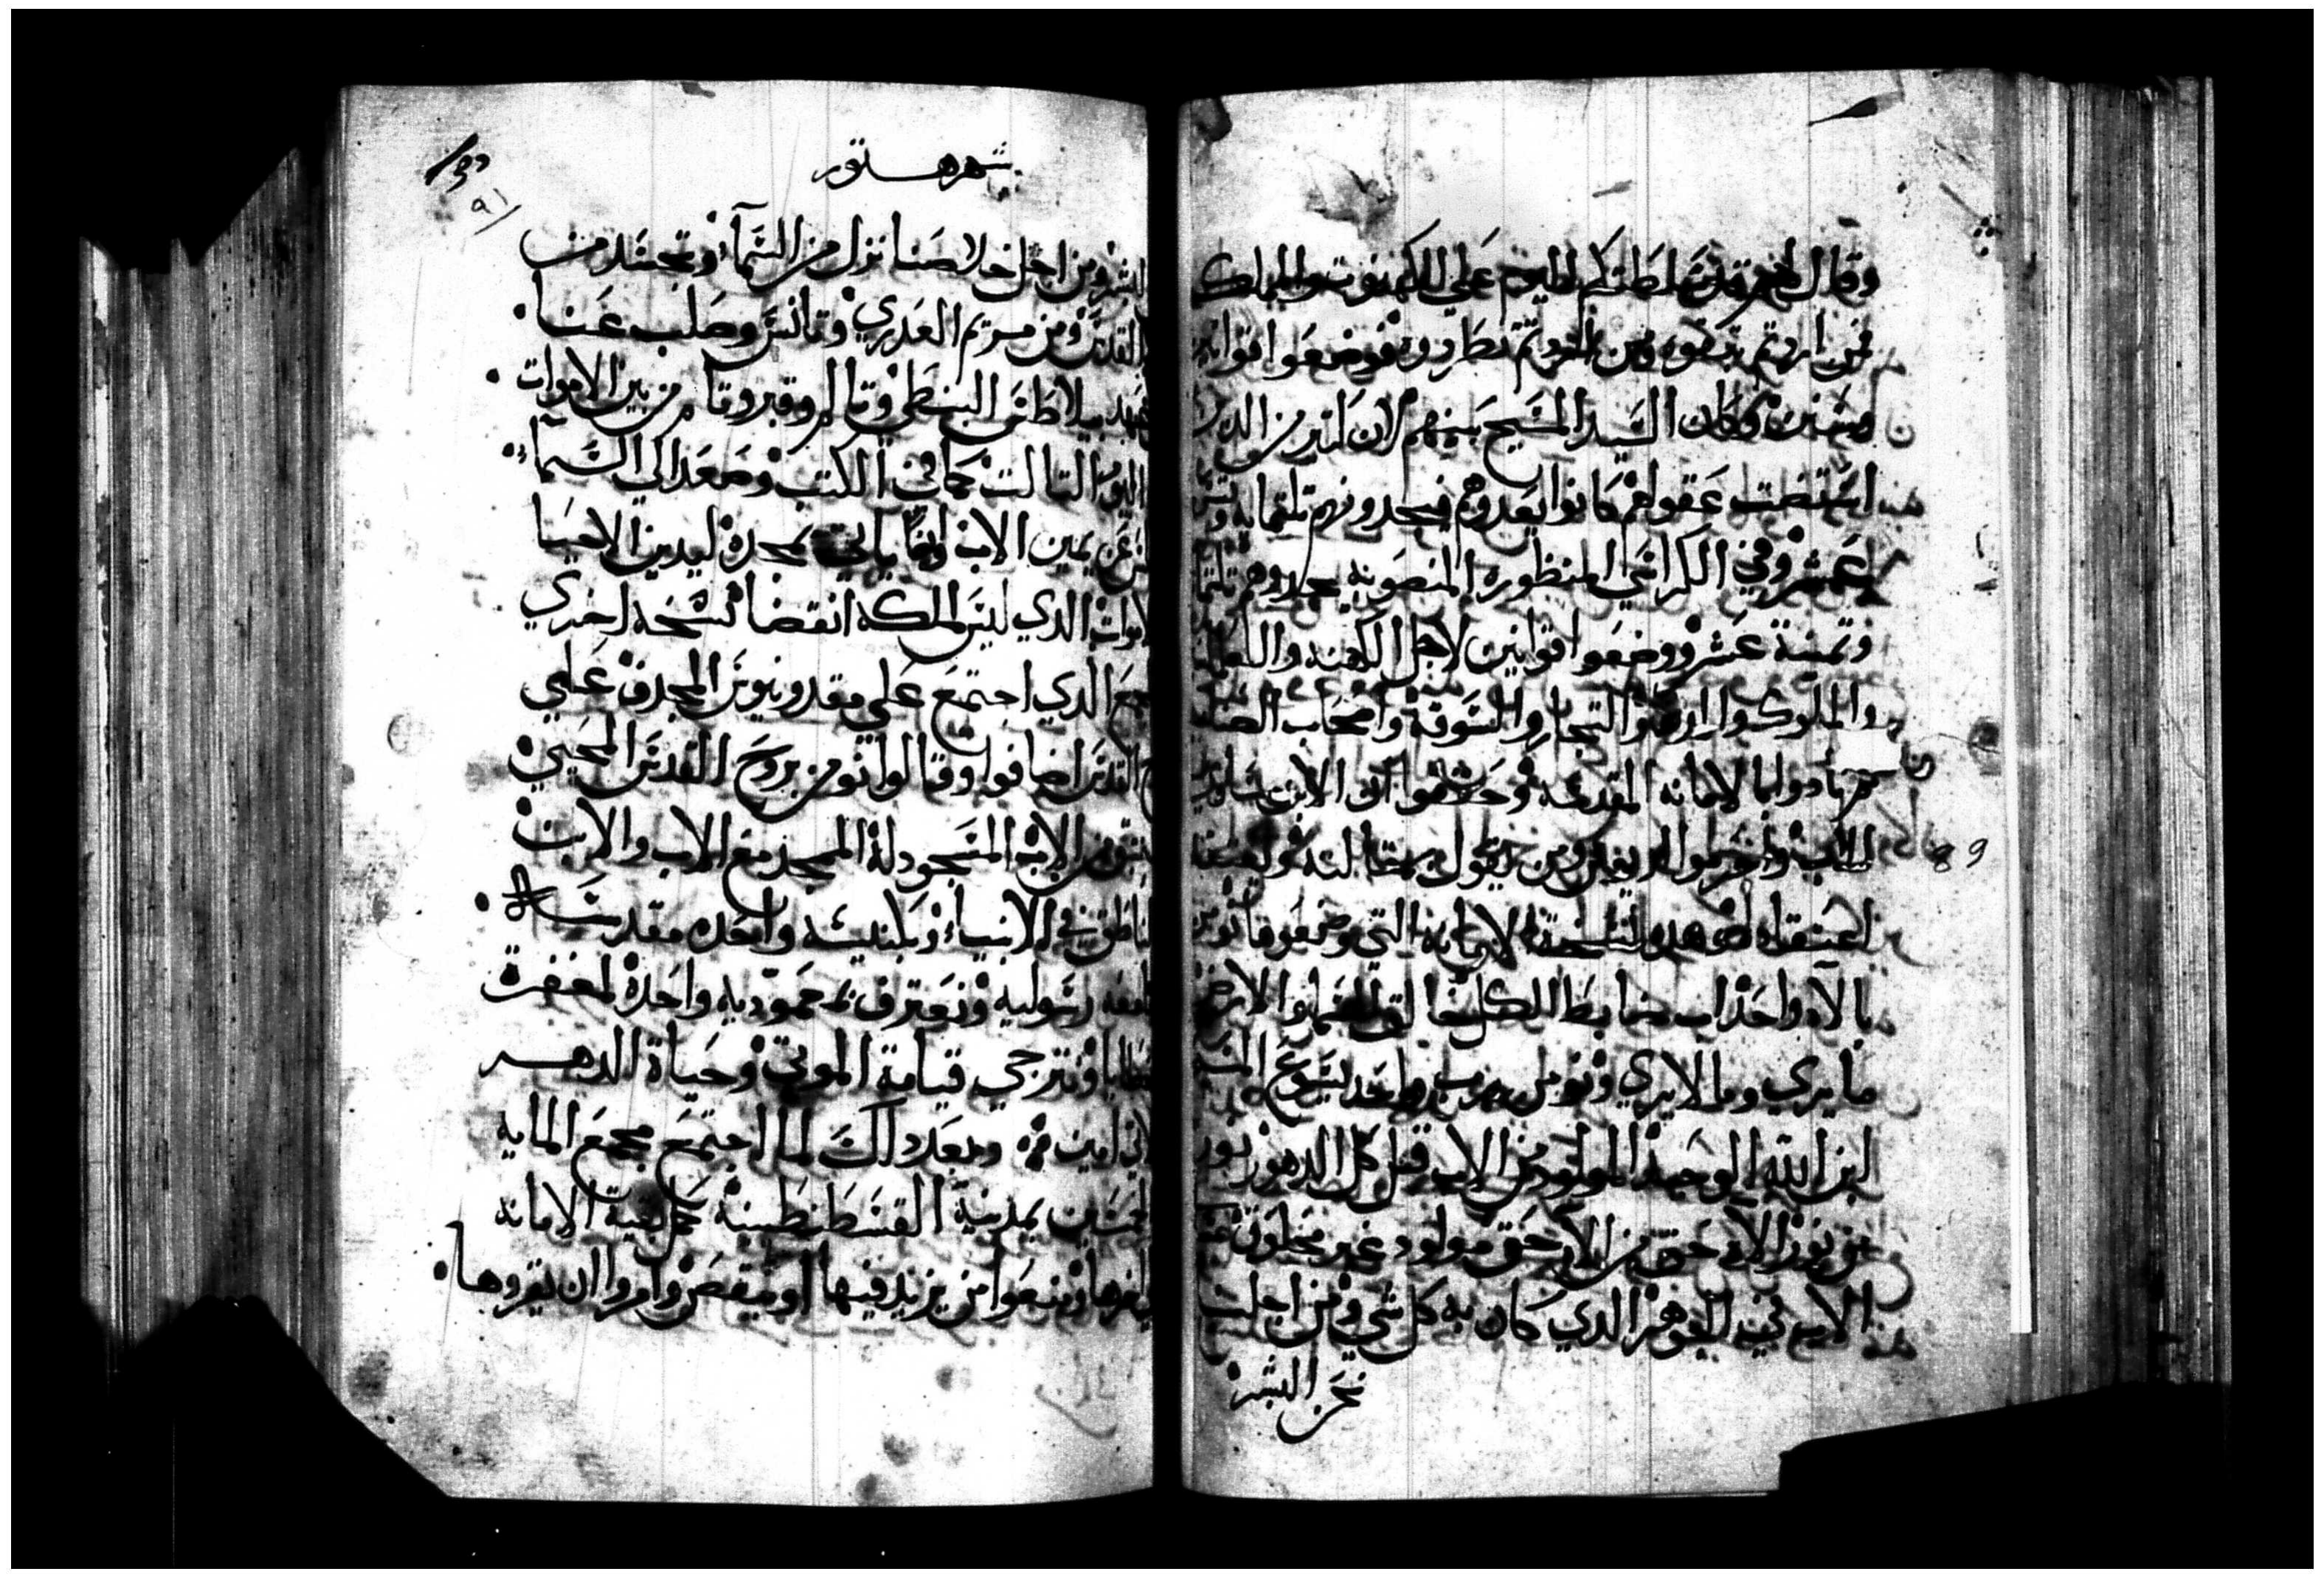 وقال لهم قد سلطتكم اليوم على الكهنوت والمملكة
فمن اردتم تبقوه ومن اردتم تطردوه فوضعوا قوانين
وكان السيد المسيح بينهم لان الذين
استضت عقولهم كانوا يعدوهم فيجدونهم تلتمايه وتسعة
عشر وفي الكراسي المنظوره المنصوبه يجدوهم تلتمايه
وتمنية عشر ووضعوا قوانين لاجل الكهنه والعلمانيين
والملوك والتجار والسوقة واصحاب الصنايع
الامانه المقدسه وحققوا ان الابن مساوي
للاب واحرموا اريوس ومن يقول بمقالته
اعتقاده هده نسخة الامانه التي وضعوها نومن
بالاه واحد اب ضابط الكل خالق السما والارض
ما يرى وما لا يرى ونومن برب واحد يسوع المسيح
ابن الله الوحيد المولود من الاب قبل كل الدهور نور
من نور الاه حق من الاه حق مولود غير مخلوق
الاب في الجوهر الدي كان به كل شي ومن اجلنا
نحن البشر
89
شهر هتور
البشر ومن اجل خلاصنا نزل من السماء وتجسد من
القدس ومن مريم العدري وتانس وصلب عنا
عهد بيلاطس البنطي وتالم وقبر وقام من بين الاموات
اليوم التالت كما في الكتب وصعد الى السماء
عن يمين الاب وايضا ياتي بمجده ليدين الاحيا
الاموات الدي ليس لملكه انقضا نسخه اخري
الدي اجتمع على مقدونيوس المجدف على
القدس اضافوا وقالوا نومن بروح القدس المحيي
من الاب المسجود له الممجد مع الاب والابن
الناطق في الانبياء وبكنيسه واحده مقدسه
جامعه رسوليه ونعترف بمعموديه واحدة لمغفرة
الخطايا ونترجى قيامة الموتى وحياة الدهر
الاتي امين وبعد دلك لما اجتمع مجمع المايه
خمسين بمدينة القسطنطينية بقية الامانه
ومنعوا من يزيد فيها او ينقص وامروا ان يقروها